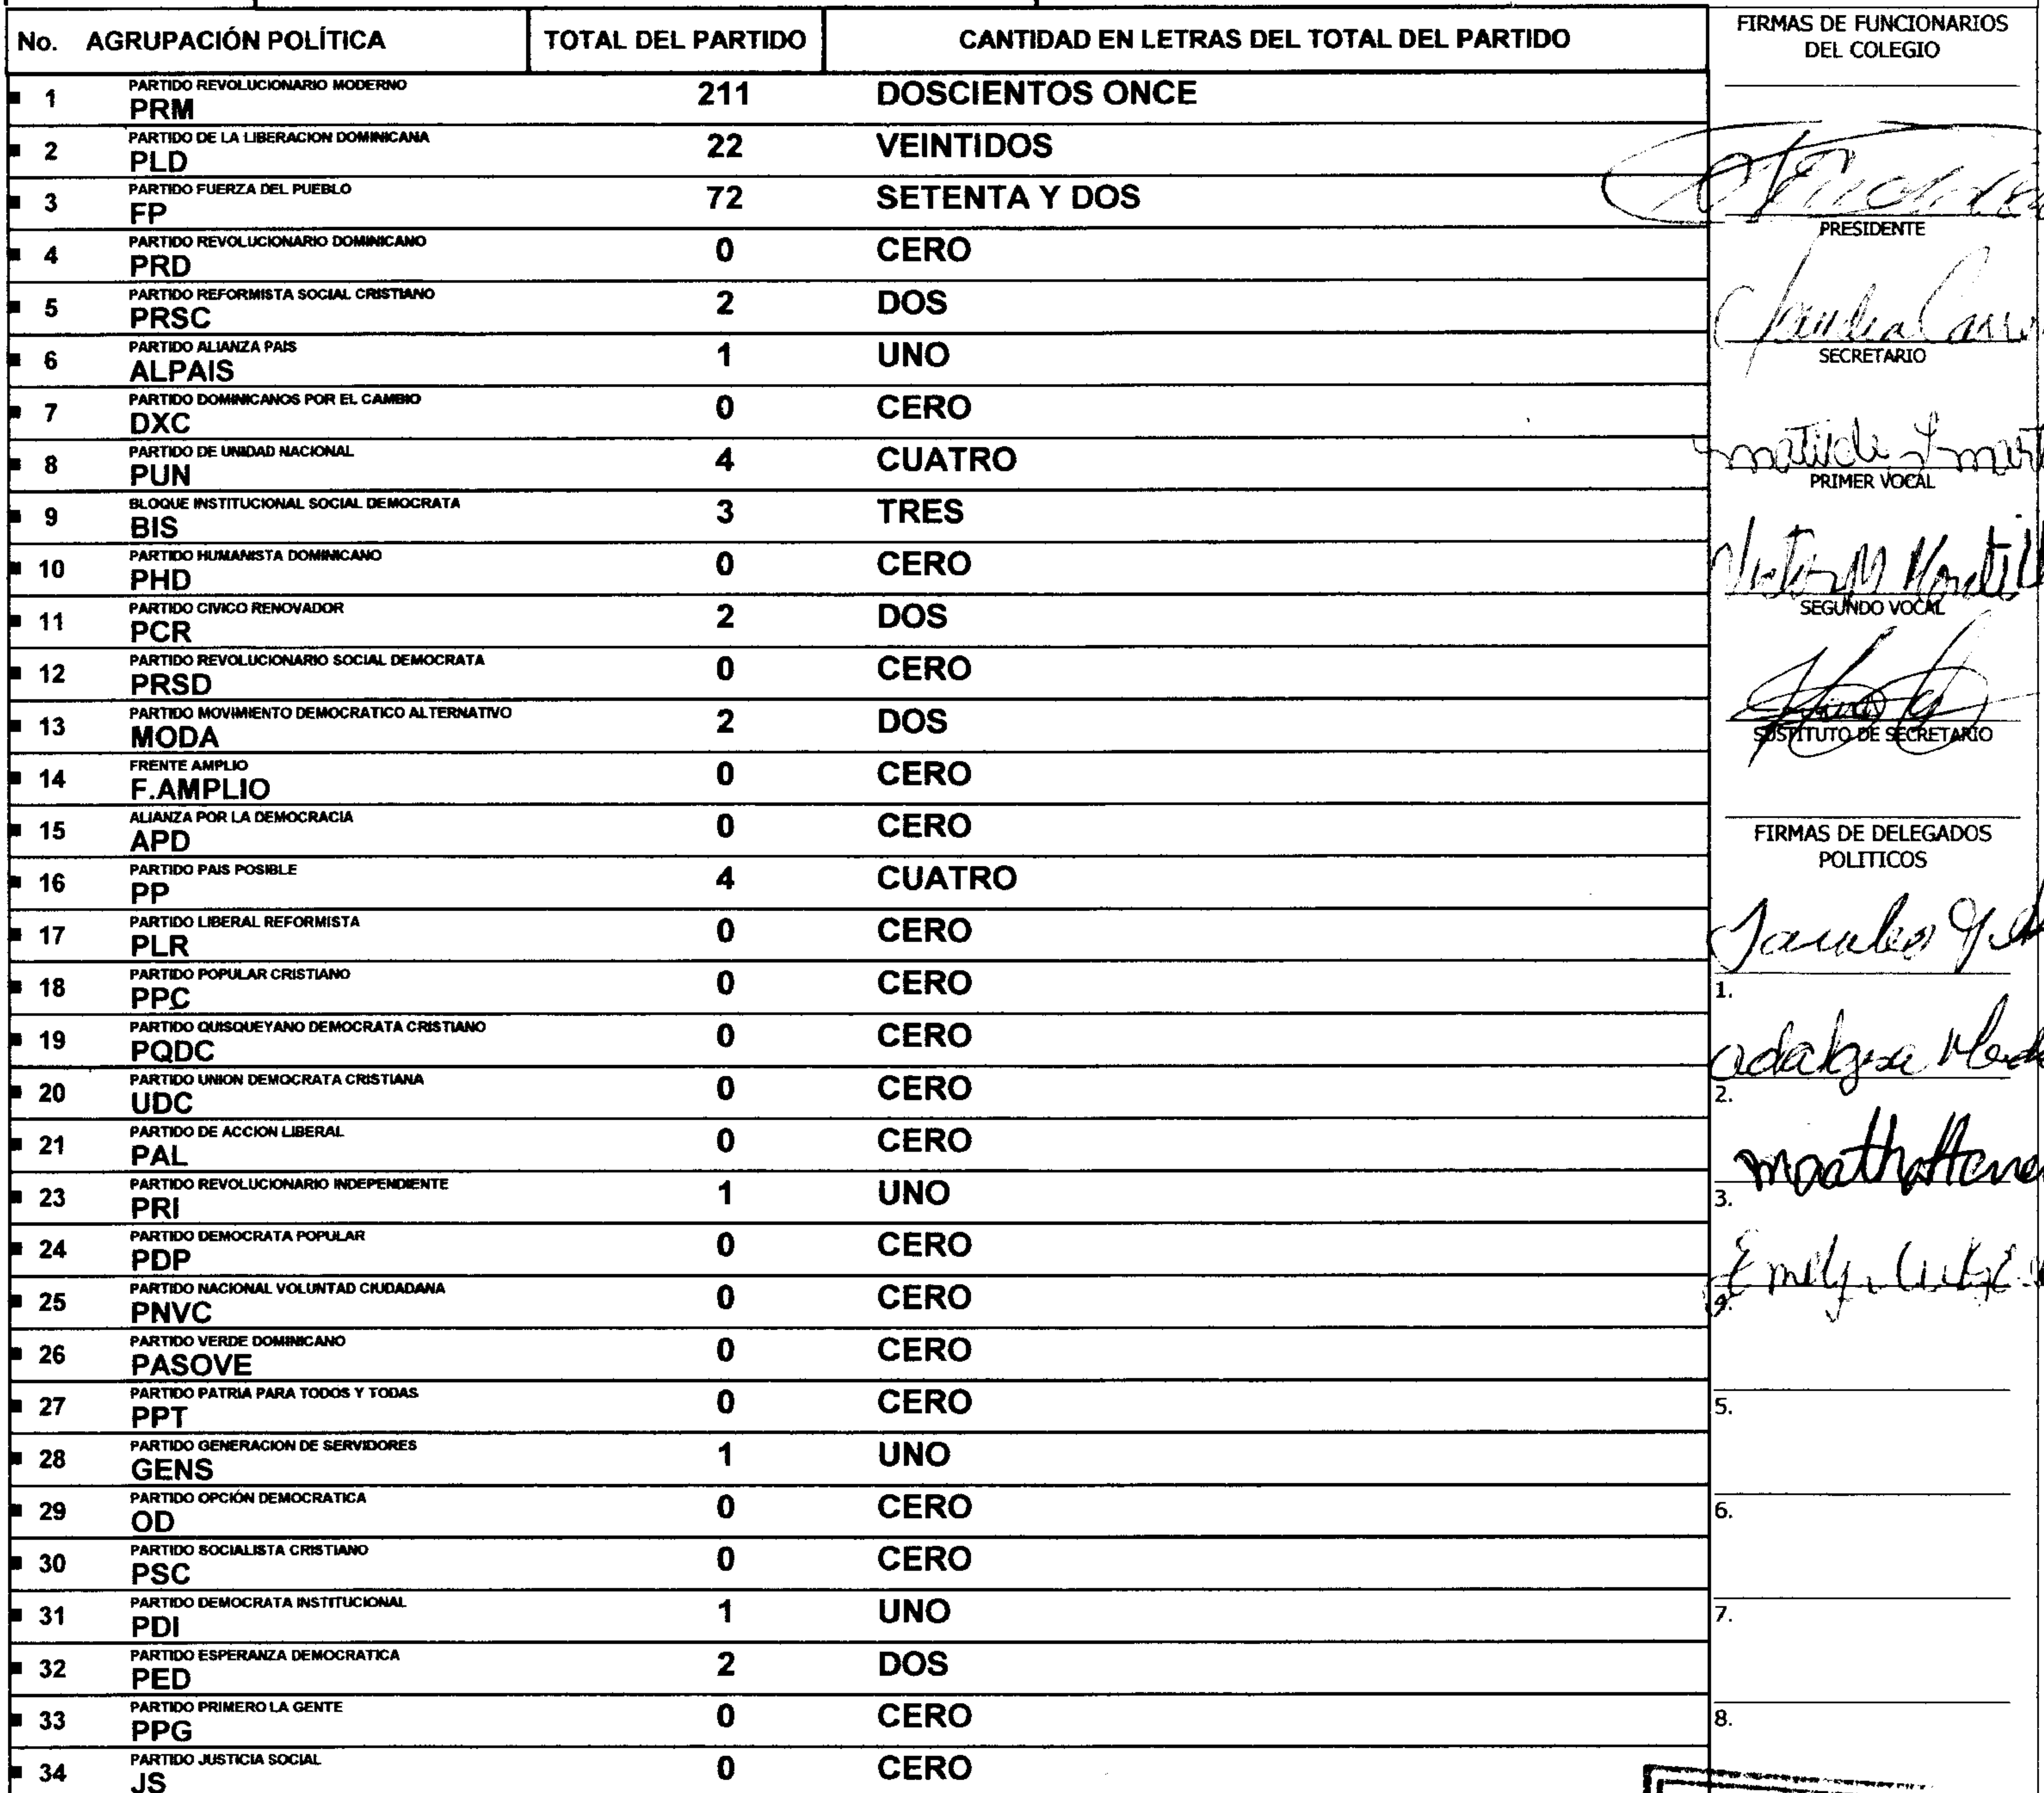 No. AGRUPACIÓN POLÍTICA TOTAL DEL PARTIDO CANTIDAD EN LETRAS DEL TOTAL DEL PARTIDO
PARTIDO REVOLUCIONARIO MODERNO
1 PRM 211 DOSCIENTOS ONCE
PARTIDO DE LA LIBERACION DOMINICANA
2 PLD 22 VEINTIDOS
PARTIDO FUERZA DEL PUEBLO
3 FP 72 SETENTA Y DOS
PARTIDO REVOLUCIONARIO DOMINICANO
4 PRD 0 CERO
PARTIDO REFORMISTA SOCIAL CRISTIANO
5 PRSC 2 DOS
PARTIDO ALIANZA PAIS
6 ALPAIS 1 UNO
PARTIDO DOMINICANOS POR EL CAMBIO
7 DXC 0 CERO
PARTIDO DE UNIDAD NACIONAL
8 PUN 4 CUATRO
BLOQUE INSTITUCIONAL SOCIAL DEMOCRATA
9 BIS 3 TRES
PARTIDO HUMANISTA DOMINICANO
10 PHD 0 CERO
PARTIDO CIVICO RENOVADOR
11 PCR 2 DOS
PARTIDO REVOLUCIONARIO SOCIAL DEMOCRATA
12 PRSD 0 CERO
PARTIDO MOVIMIENTO DEMOCRATICO ALTERNATIVO
13 MODA 2 DOS
FRENTE AMPLIO
14 F.AMPLIO 0 CERO
ALIANZA POR LA DEMOCRACIA
15 APD 0 CERO
PARTIDO PAIS POSIBLE
16 PP 4 CUATRO
PARTIDO LIBERAL REFORMISTA
17 PLR 0 CERO
PARTIDO POPULAR CRISTIANO
18 PPC 0 CERO
PARTIDO QUISQUEYANO DEMOCRATA CRISTIANO
19 PQDC 0 CERO
PARTIDO UNION DEMOCRATA CRISTIANA
20 UDC 0 CERO
PARTIDO DE ACCION LIBERAL
21 PAL 0 CERO
PARTIDO REVOLUCIONARIO INDEPENDIENTE
23 PRI 1 UNO
PARTIDO DEMOCRATA POPULAR
24 PDP 0 CERO
PARTIDO NACIONAL VOLUNTAD CIUDADANA
25 PNVC 0 CERO
PARTIDO VERDE DOMINICANO
26 PASOVE 0 CERO
PARTIDO PATRIA PARA TODOS Y TODAS
27 PPT 0 CERO
PARTIDO GENERACION DE SERVIDORES
28 GENS 1 UNO
PARTIDO OPCIÓN DEMOCRATICA
29 OD 0 CERO
PARTIDO SOCIALISTA CRISTIANO
30 PSC 0 CERO
PARTIDO DEMOCRATA INSTITUCIONAL
31 PDI 1 UNO
PARTIDO ESPERANZA DEMOCRATICA
32 PED 2 DOS
PARTIDO PRIMERO LA GENTE
33 PPG 0 CERO
PARTIDO JUSTICIA SOCIAL
34 JS 0 CERO
FIRMAS DE FUNCIONARIOS
DEL COLEGIO
PRESIDENTE
SECRETARIO
PRIMER VOCAL
SEGUNDO VOCAL
SUSTITUTO DE SECRETARIO
FIRMAS DE DELEGADOS
POLITICOS
1.
2.
3.
4.
5.
6.
7.
8.